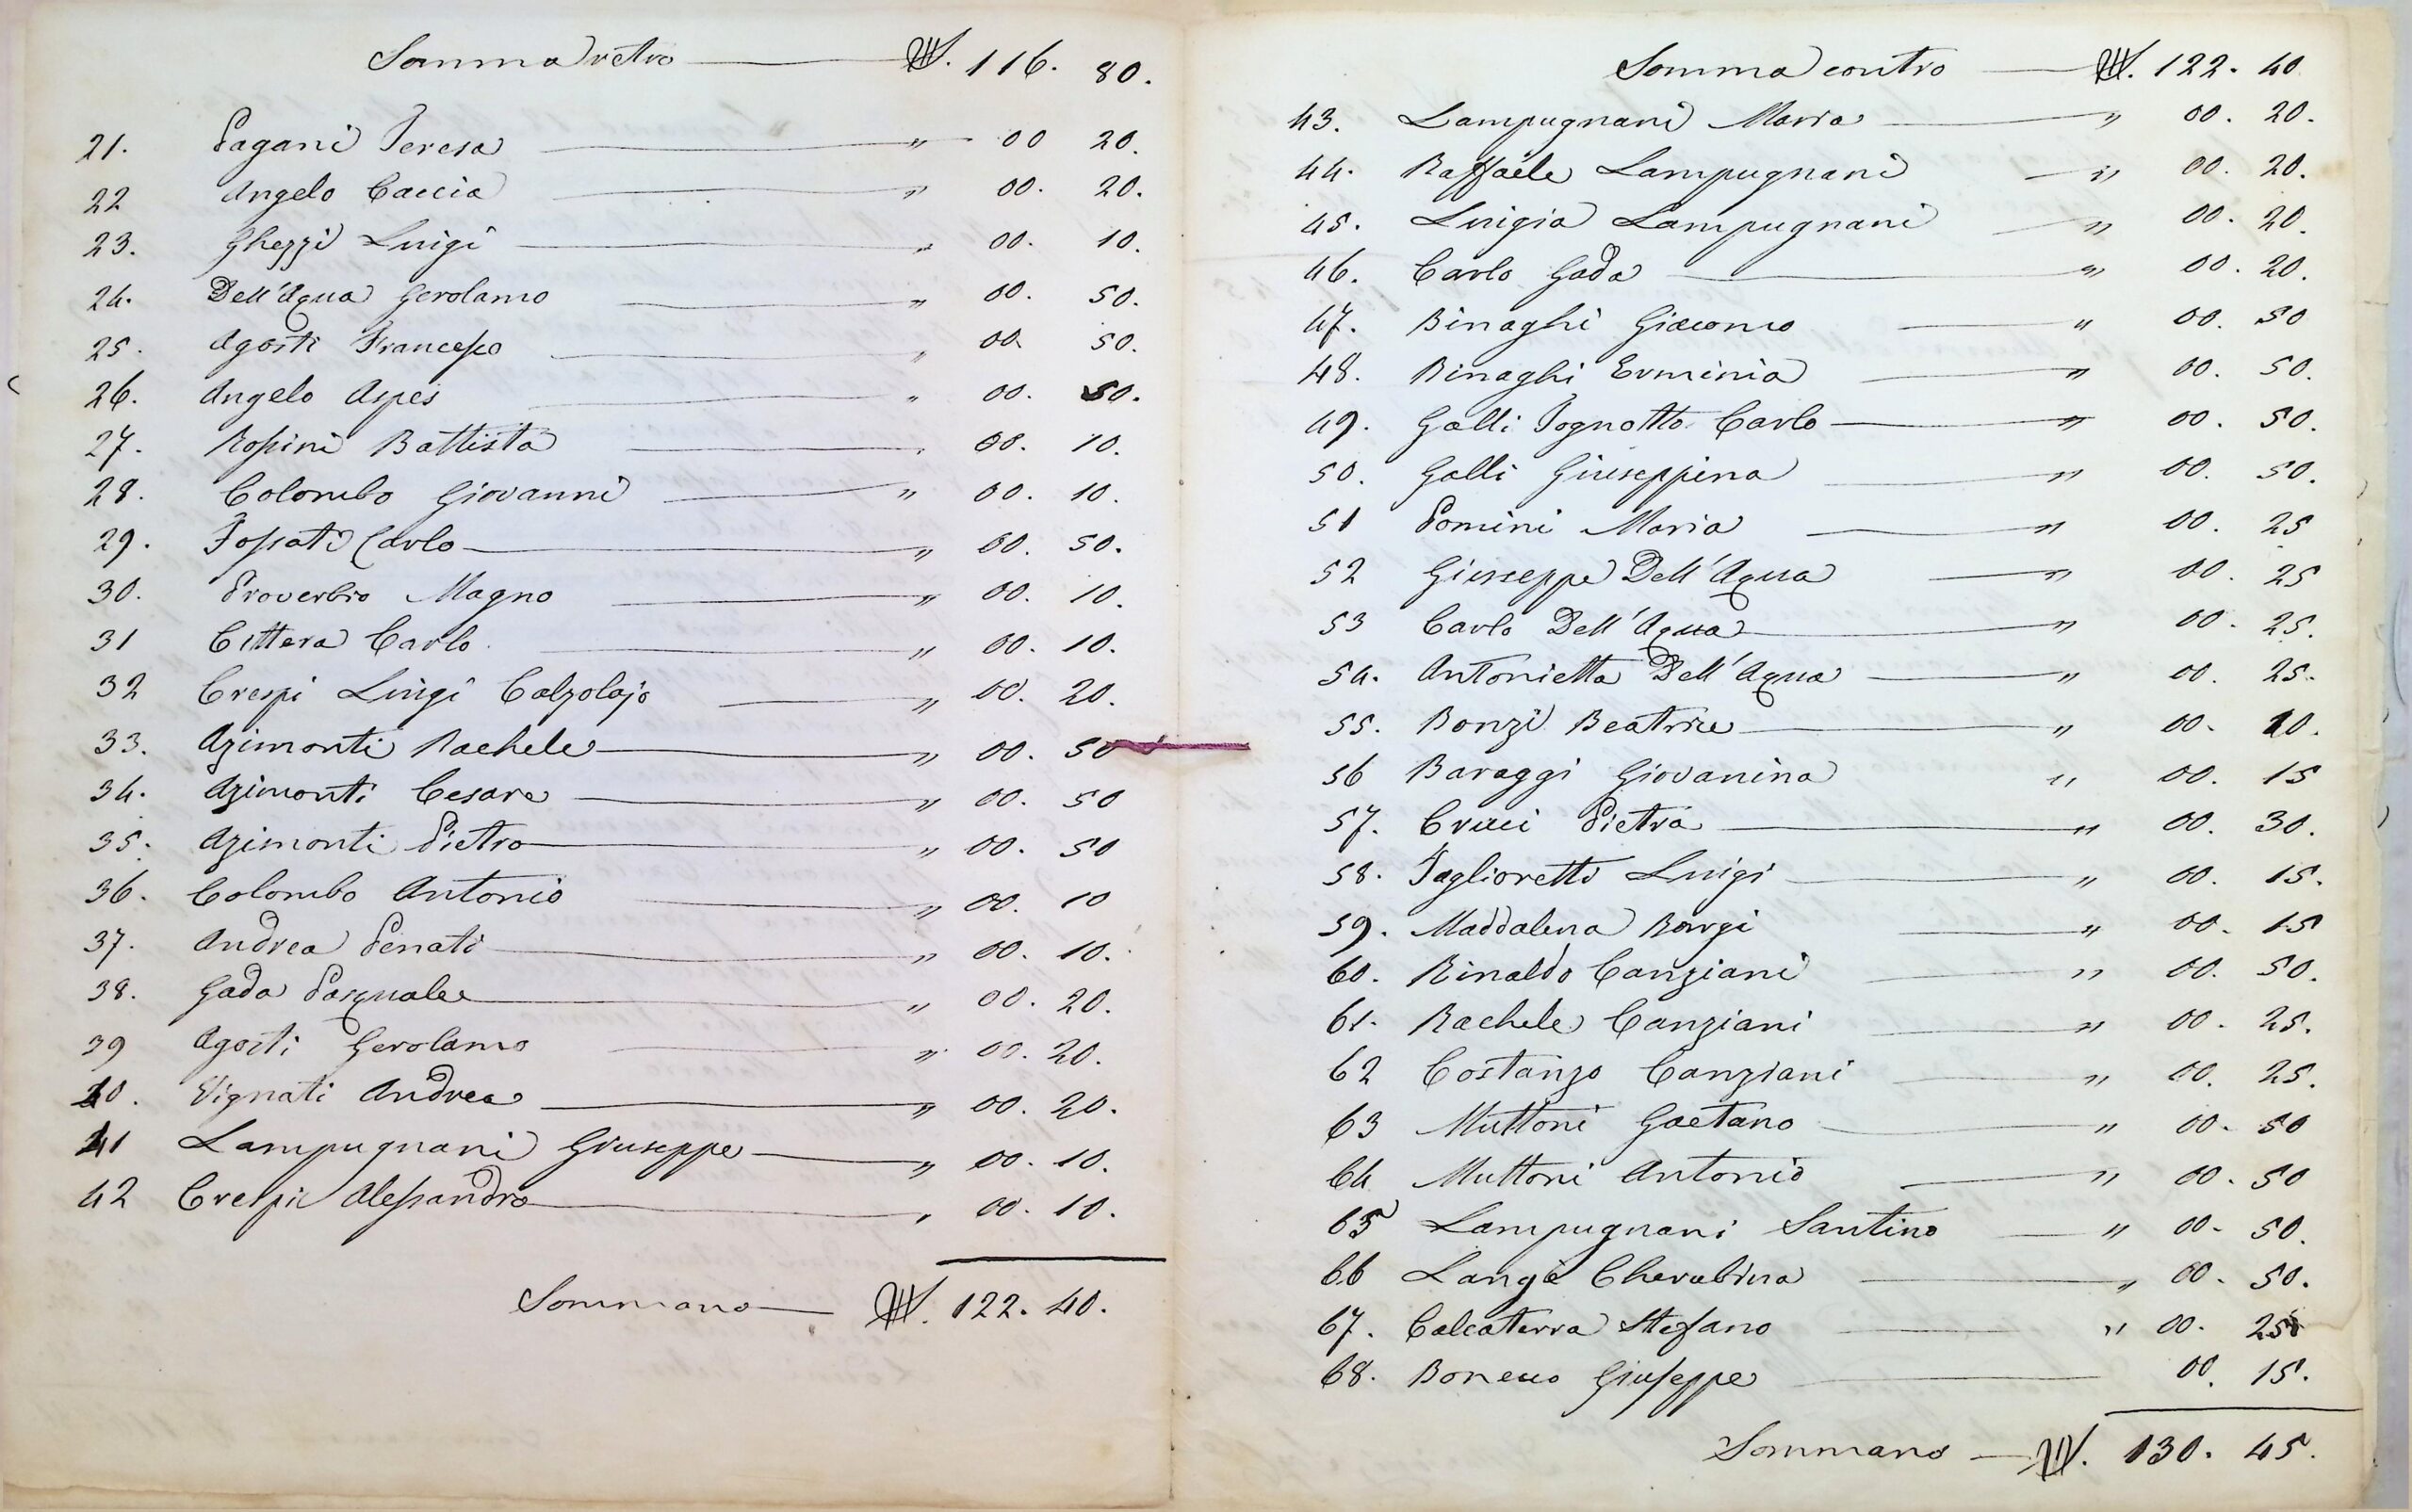 Somma retro ₶. 116. 80.
21. Pagani Teresa " 00 20.
22 Angelo Caccia " 00. 20.
23. Ghezzi Luigi " 00. 10.
24. Dell'Aqua Gerolamo " 00. 50.
25. Agosti Francesco " 00. 50.
26. Angelo Aspes " 00. 50.
27. Rossini Battista " 00. 10.
28. Colombo Giovanni " 00. 10.
29. Fossati Carlo " 00. 50.
30. Proverbio Magno " 00. 10.
31 Cittera Carlo " 00. 10.
32 Crespi Luigi Calzolajo " 00. 20.
33. Azimonti Rachele " 00. 50
34. Azimonti Cesare " 00. 50
35. Azimonti Pietro " 00. 50
36. Colombo Antonio " 00. 10
37. Andrea Penati " 00. 10.
38. Gada Pasquale " 00. 20.
39 Agosti Gerolamo " 00. 20.
40. Vignati Andrea " 00. 20.
41 Lampugnani Giuseppe " 00. 10.
42 Crespi Alessandro " 00. 10.
Sommano ₶. 122. 40.
Somma contro ₶. 122. 40
43. Lampugnani Maria " 00. 20.
44. Raffaele Lampugnani " 00. 20.
45. Luigia Lampugnani " 00. 20.
46. Carlo Gada " 00. 20.
47. Binaghi Giacomo " 00. 50
48. Binaghi Erminia " 00. 50.
49. Galli Tognotto Carlo " 00. 50.
50. Galli Giuseppina " 00. 50.
51 Pomini Maria " 00. 25
52 Giuseppe Dell'Aqua " 00. 25
53 Carlo Dell'Aqua " 00. 25.
54. Antonietta Dell'Aqua " 00. 25.
55. Bonzi Beatrice " 00. 10.
56 Baraggi Giovanina " 00. 15
57. Cruci Pietra " 00. 30.
58. Taglioretti Luigi " 00. 15.
59. Maddalena Borgi " 00. 15
60. Rinaldo Canziani " 00. 50.
61. Rachele Canziani " 00. 25.
62 Costanzo Canziani " 00. 25.
63 Muttoni Gaetano " 00. 50
64 Muttoni Antonio " 00. 50
65 Lampugnani Santino " 00. 50.
66 Langé Cherubina " 00. 50.
67. Calcaterra Stefano " 00. 25
68. Giuseppe 00. 15.
Sommano ₶. 130. 45.